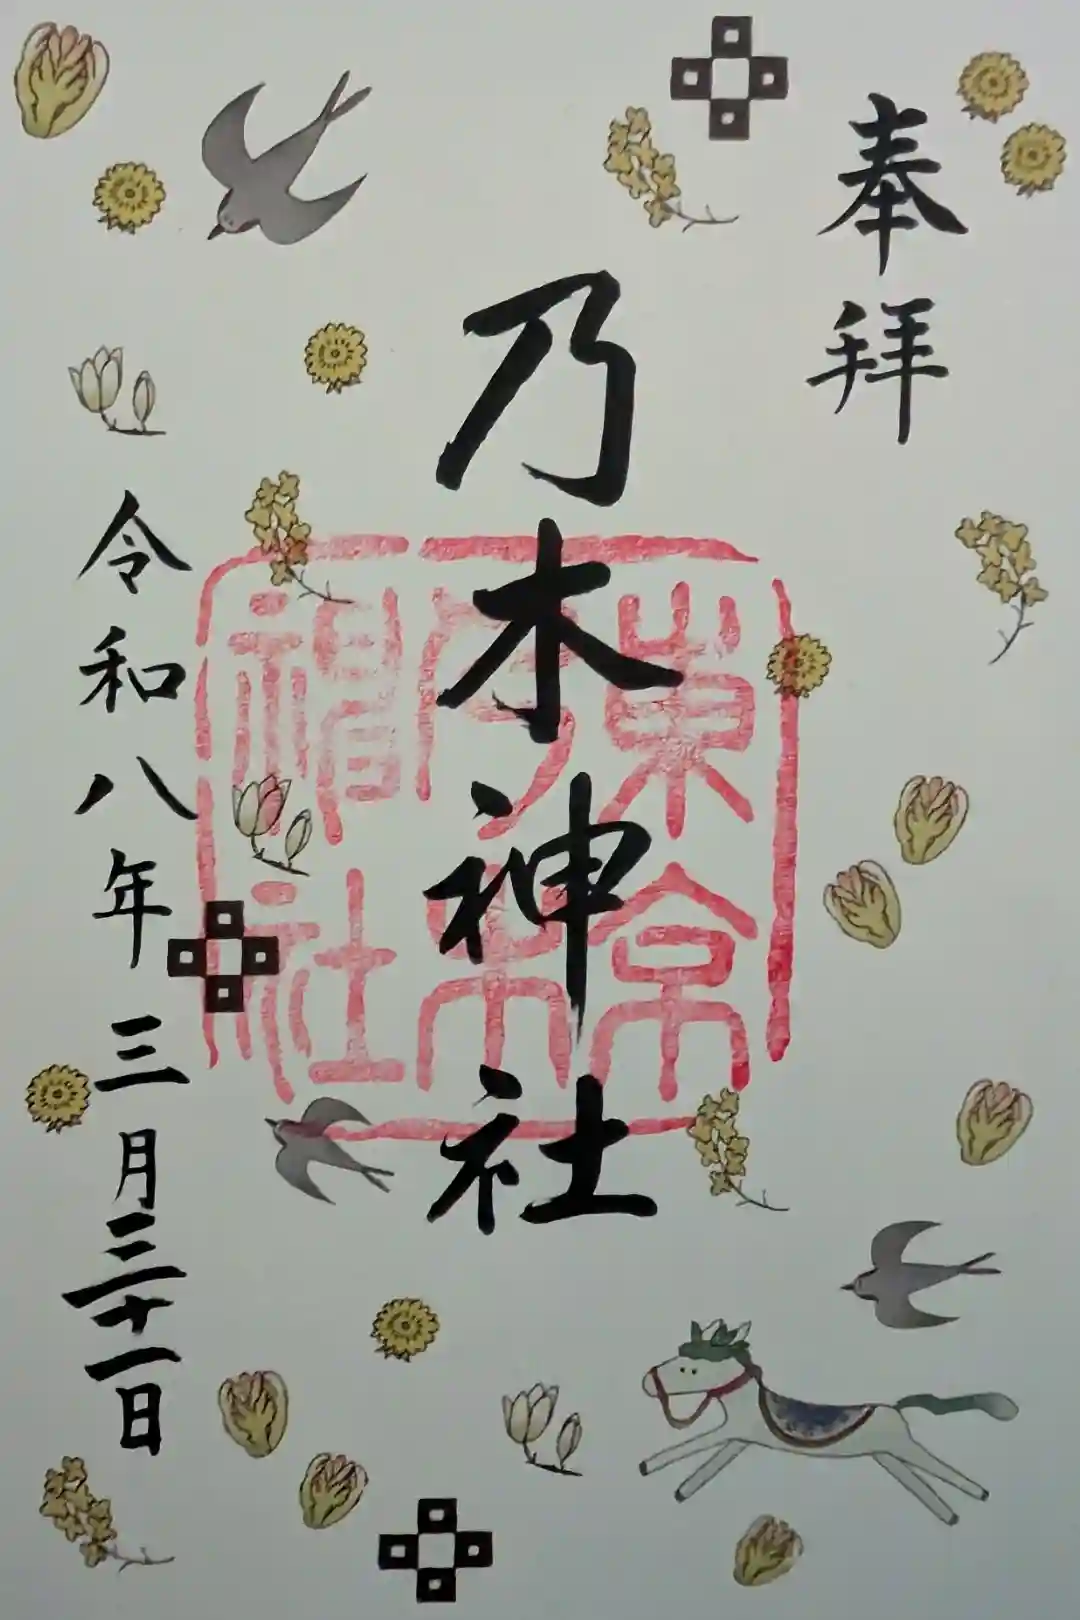 奉拝
乃木神社
東京
乃木
神社
令和八年三月三十一日